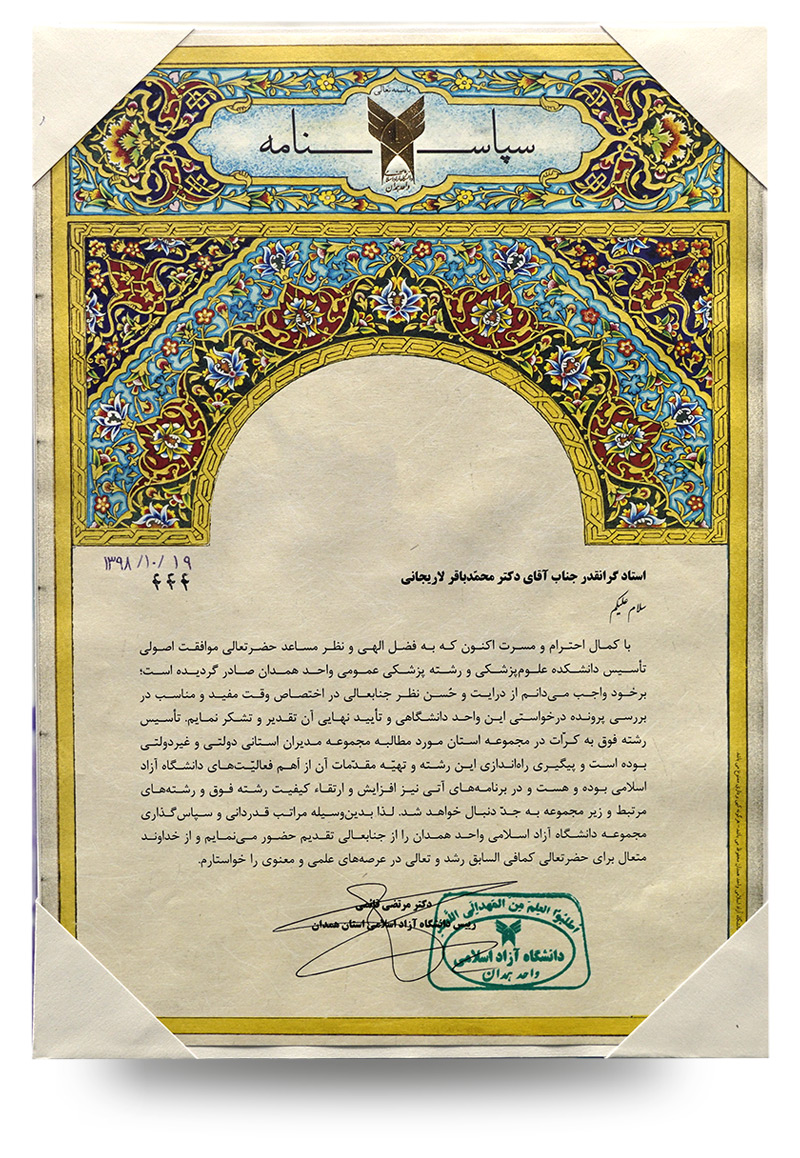 باسمه تعالی
سپاسنامه
دانشگاه آزاد اسلامی
واحد همدان
۱۳۹۸/۱۰/۱۹
۴۴۴
استاد گرانقدر جناب آقای دکتر محمّدباقر لاریجانی
سلام علیکم
با کمال احترام و مسرت اکنون که به فضل الهی و نظر مساعد حضرتعالی موافقت اصولی
تأسیس دانشکده علوم‌پزشکی و رشته پزشکی عمومی واحد همدان صادر گردیده است؛
برخود واجب می‌دانم از درایت و حُسن نظر جنابعالی در اختصاص وقت مفید و مناسب در
بررسی پرونده درخواستی این واحد دانشگاهی و تأیید نهایی آن تقدیر و تشکر نمایم. تأسیس
رشته فوق به کرّات در مجموعه استان مورد مطالبه مجموعه مدیران استانی دولتی و غیردولتی
بوده است و پیگیری راه‌اندازی این رشته و تهیّه مقدّمات آن از أهم فعالیّت‌های دانشگاه آزاد
اسلامی بوده و هست و در برنامه‌های آتی نیز افزایش و ارتقاء کیفیت رشته فوق و رشته‌های
مرتبط و زیر مجموعه به جدّ دنبال خواهد شد. لذا بدین‌وسیله مراتب قدردانی و سپاس‌گذاری
مجموعه دانشگاه آزاد اسلامی واحد همدان را از جنابعالی تقدیم حضور می‌نمایم و از خداوند
متعال برای حضرتعالی کمافی السابق رشد و تعالی در عرصه‌های علمی و معنوی را خواستارم.
دکتر مرتضی قائمی
رییس دانشگاه آزاد اسلامی استان همدان
اطلبوا العلم من المهد الی اللحد
دانشگاه آزاد اسلامی
واحد همدان